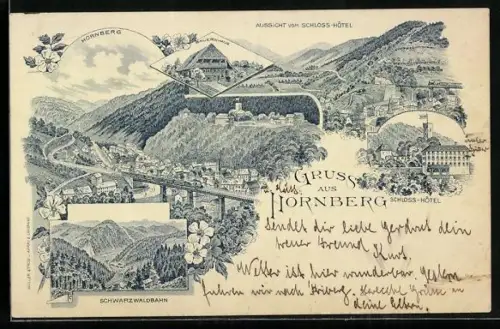 HORNBERG
BAUERNHAUS
AUSSICHT VOM SCHLOSS-HÔTEL
GRUSS
AUS
HORNBERG
SCHLOSS-HÔTEL
SCHWARZWALDBAHN
Sendet dir liebe Gerdret dein
treuer Freund Kurt.
Wetter ist hier wunderbar. Gestern
fuhren wir nach Triberg. Herzliche Grüsse an
deine Eltern.